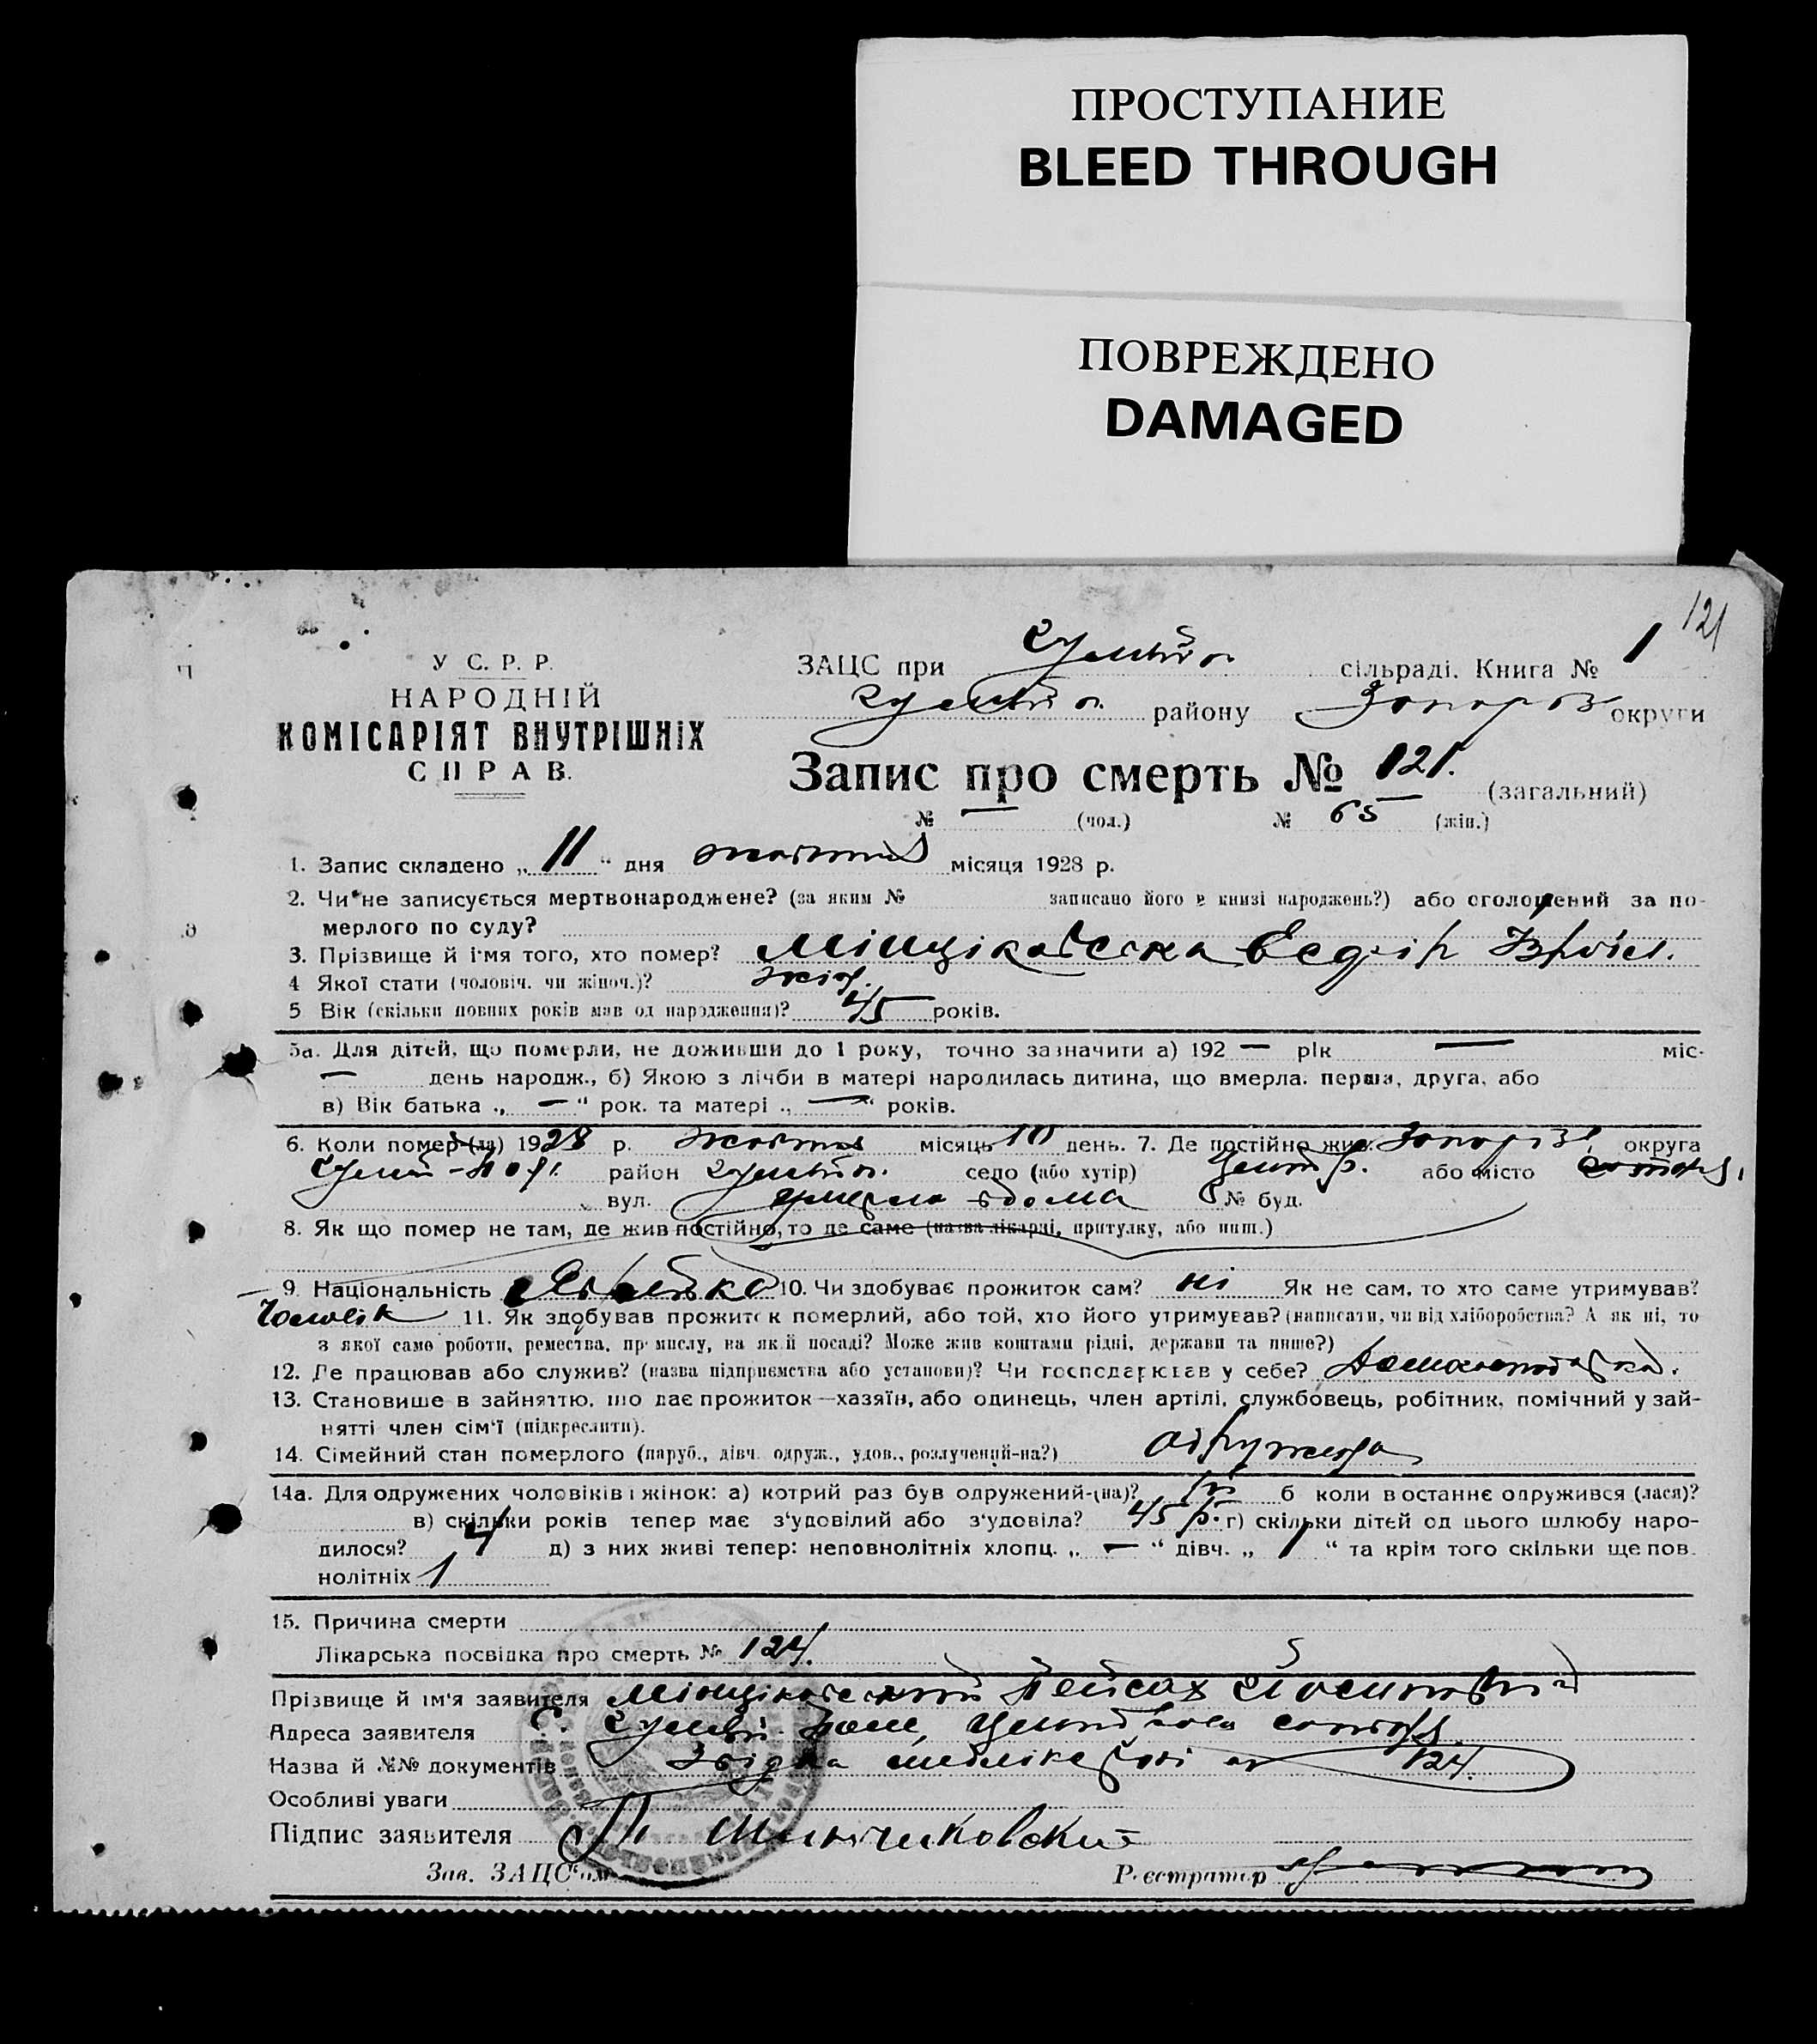 ПРОСТУПАНИЕ
BLEED THROUGH
ПОВРЕЖДЕНО
DAMAGED
121
У С. Р. Р.
НАРОДНІЙ
КОМІСАРІЯТ ВНУТРІШНІХ
СПРАВ.
ЗАЦС при сільраді. Книга № 1
району Запоріз округи
Запис про смерть № 121. (загальний)
№ — (чол.) № 65 (жін.)
1. Запис складено „ 11 “ дня жовтня місяця 1928 р.
2. Чи не записується мертвонароджене? (за яким № записано його в книзі народжень?) або оголошений за по-
мерлого по суду?
3. Прізвище й ім'я того, хто помер? Мінціковська
4 Якої стати (чоловіч. чи жіноч.)? жін.
5 Вік (скільки повних років мав од народження)? 45 років.
5а. Для дітей, що померли, не доживши до 1 року, точно зазначити а) 192 — рік — міс-
— день народж., б) Якою з лічби в матері народилась дитина, що вмерла: перша, друга, або
в) Вік батька „ — “ рок. та матері „ — “ років.
6. Коли помер (ла) 1928 р. жовтня місяць 10 день. 7. Де постійно жив Запоріз. округа
район село (або хутір) Центр. або місто
вул. вдома № буд.
8. Як що помер не там, де жив постійно, то де саме (назва лікарні, притулку, або инш.)
9. Національність 10. Чи здобуває прожиток сам? ні Як не сам, то хто саме утримував?
Чоловік 11. Як здобував прожиток померлий, або той, хто його утримував? (написати, чи від хліборобства? А як ні, то
з якої саме роботи, ремества, промислу, на якій посаді? Може жив коштами рідні, держави та инше?)
12. Де працював або служив? (назва підприємства або установи)? Чи господарював у себе?
13. Становище в зайняттю, що дає прожиток—хазяїн, або одинець, член артілі, службовець, робітник, помічний у зай-
нятті член сім'ї (підкреслити).
14. Сімейний стан померлого (паруб., дівч. одруж., удов., розлучений-на?) одружена
14а. Для одружених чоловіків і жінок: а) котрий раз був одружений-(на)? б коли в останнє одружився (лася)?
в) скільки років тепер має з'удовілий або з'удовіла? 45 р. г) скільки дітей од цього шлюбу наро-
дилося? 4 д) з них живі тепер: неповнолітніх хлопц. „ — “ дівч. „ 1 “ та крім того скільки ще пов.
нолітніх 1
15. Причина смерти
Лікарська посвідка про смерть № 124.
Прізвище й ім'я заявителя Мінціковський Пейсах Йосипович
Адреса заявителя
Назва й №№ документів 124.
Особливі уваги
Підпис заявителя П Минчиковский
Зав. ЗАЦС'ом Реєстратор